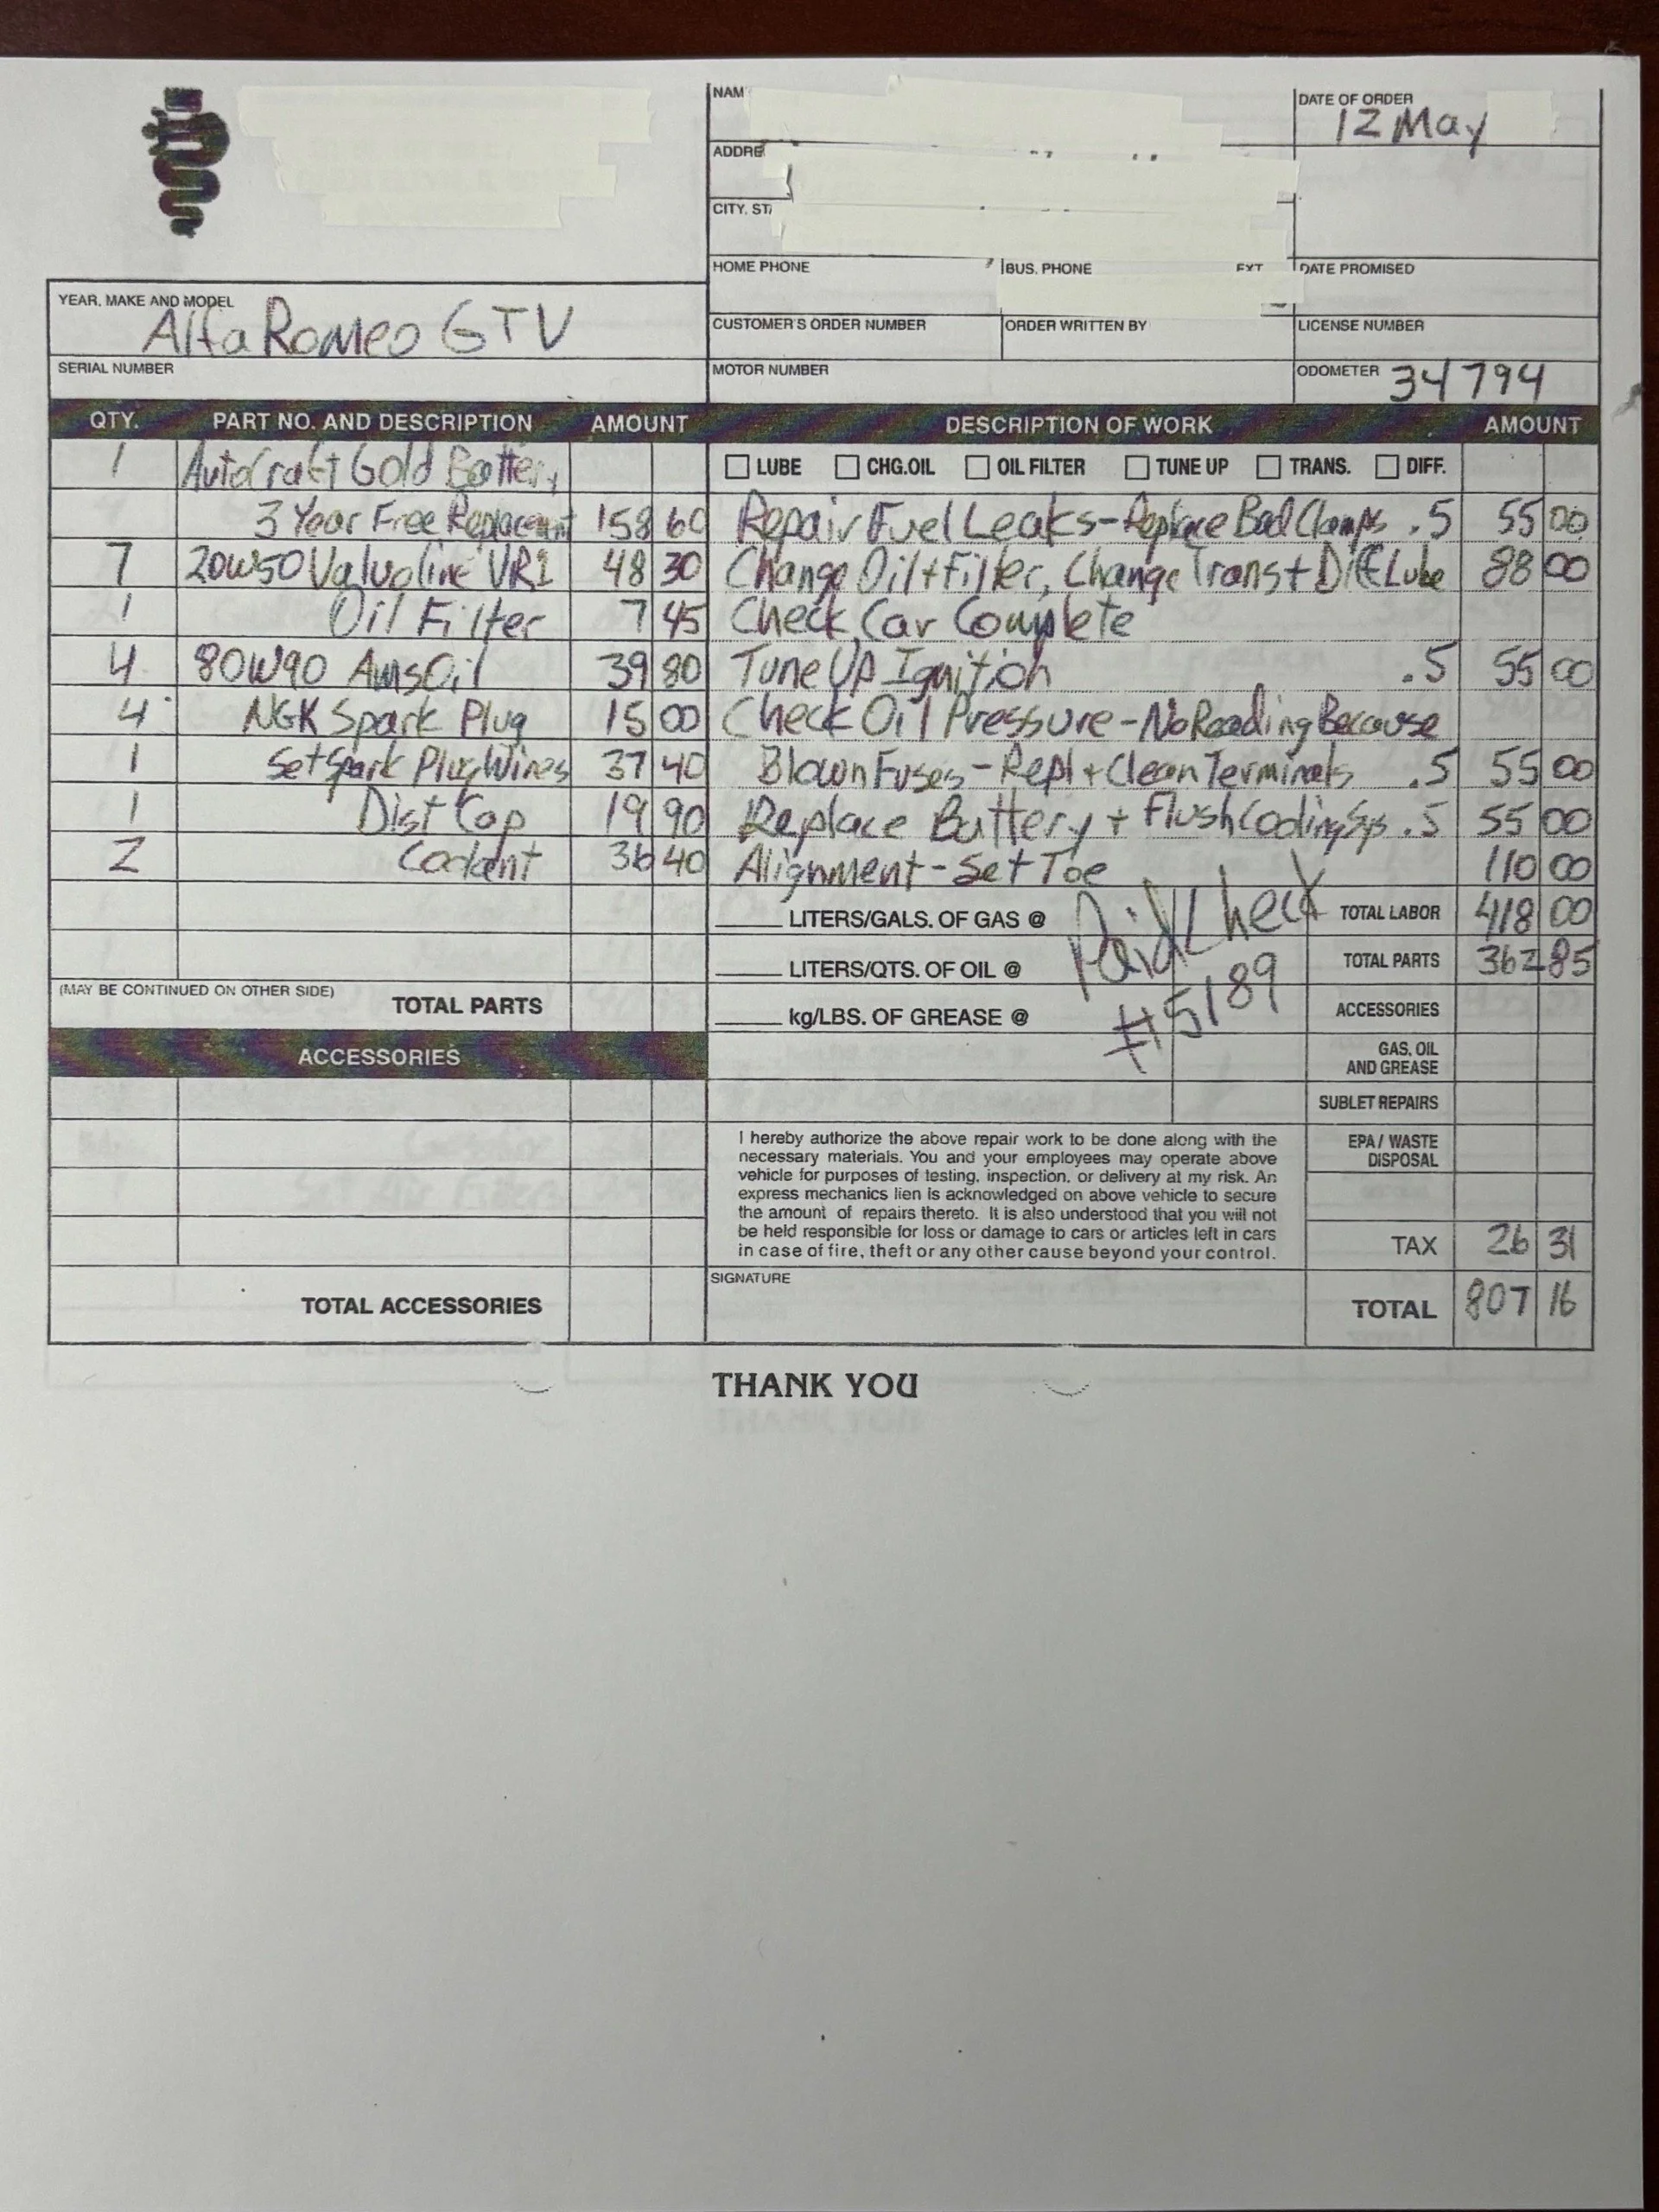 NAM
DATE OF ORDER
12 May
ADDRE
CITY, STA
HOME PHONE
BUS. PHONE
EXT
DATE PROMISED
YEAR, MAKE AND MODEL
Alfa Romeo GTV
CUSTOMER'S ORDER NUMBER
ORDER WRITTEN BY
LICENSE NUMBER
SERIAL NUMBER
MOTOR NUMBER
ODOMETER 34794
QTY. PART NO. AND DESCRIPTION AMOUNT
1 AutoCraft Gold Battery
3 Year Free Replacement 158 60
7 20W50 Valvoline VR1 48 30
1 Oil Filter 7 45
4 80W90 AmsOil 39 80
4 NGK Spark Plug 15 00
1 Set Spark Plug Wires 37 40
1 Dist Cap 19 90
2 Coolant 36 40
(MAY BE CONTINUED ON OTHER SIDE) TOTAL PARTS
ACCESSORIES
TOTAL ACCESSORIES
DESCRIPTION OF WORK AMOUNT
LUBE CHG.OIL OIL FILTER TUNE UP TRANS. DIFF.
Repair Fuel Leaks - Replace Bad Clamps .5 55 00
Change Oil + Filter, Change Trans + Diff Lube 88 00
Check Car Complete
Tune Up Ignition .5 55 00
Check Oil Pressure - No Reading Because
Blown Fuses - Repl + Clean Terminals .5 55 00
Replace Battery + Flush Cooling Sys .5 55 00
Alignment - Set Toe 110 00
LITERS/GALS. OF GAS @
LITERS/QTS. OF OIL @
kg/LBS. OF GREASE @
Paid Check
#5189
TOTAL LABOR 418 00
TOTAL PARTS 362 85
ACCESSORIES
GAS, OIL
AND GREASE
SUBLET REPAIRS
EPA / WASTE
DISPOSAL
TAX 26 31
TOTAL 807 16
I hereby authorize the above repair work to be done along with the
necessary materials. You and your employees may operate above
vehicle for purposes of testing, inspection, or delivery at my risk. An
express mechanics lien is acknowledged on above vehicle to secure
the amount of repairs thereto. It is also understood that you will not
be held responsible for loss or damage to cars or articles left in cars
in case of fire, theft or any other cause beyond your control.
SIGNATURE
THANK YOU